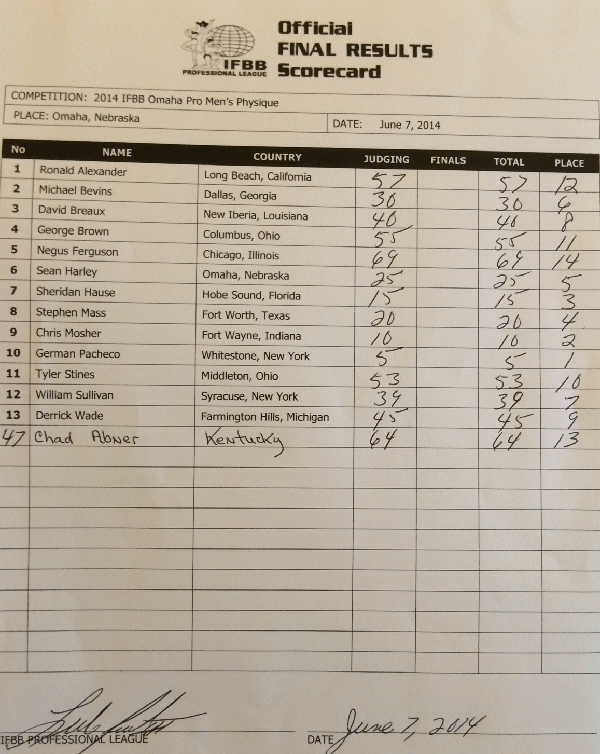 Official
FINAL RESULTS
IFBB
PROFESSIONAL LEAGUE
Scorecard
COMPETITION: 2014 IFBB Omaha Pro Men's Physique
PLACE: Omaha, Nebraska DATE: June 7, 2014
No NAME COUNTRY JUDGING FINALS TOTAL PLACE
1 Ronald Alexander Long Beach, California 57 57 12
2 Michael Bevins Dallas, Georgia 30 30 6
3 David Breaux New Iberia, Louisiana 40 40 8
4 George Brown Columbus, Ohio 55 55 11
5 Negus Ferguson Chicago, Illinois 69 69 14
6 Sean Harley Omaha, Nebraska 25 25 5
7 Sheridan Hause Hobe Sound, Florida 15 15 3
8 Stephen Mass Fort Worth, Texas 20 20 4
9 Chris Mosher Fort Wayne, Indiana 10 10 2
10 German Pacheco Whitestone, New York 5 5 1
11 Tyler Stines Middleton, Ohio 53 53 10
12 William Sullivan Syracuse, New York 39 39 7
13 Derrick Wade Farmington Hills, Michigan 45 45 9
47 Chad Abner Kentucky 64 64 13
IFBB PROFESSIONAL LEAGUE DATE June 7, 2014